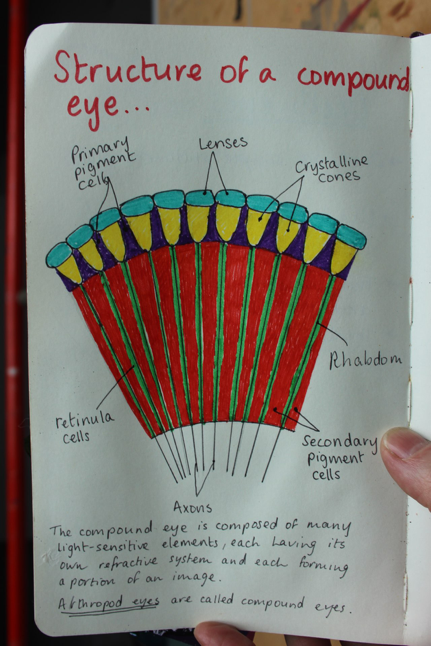 Structure of a compound
eye...
Primary
pigment
cells
Lenses
Crystalline
cones
Rhabdom
retinula
cells
Secondary
pigment
cells
Axons
The compound eye is composed of many
light-sensitive elements, each having its
own refractive system and each forming
a portion of an image.
Arthropod eyes are called compound eyes.